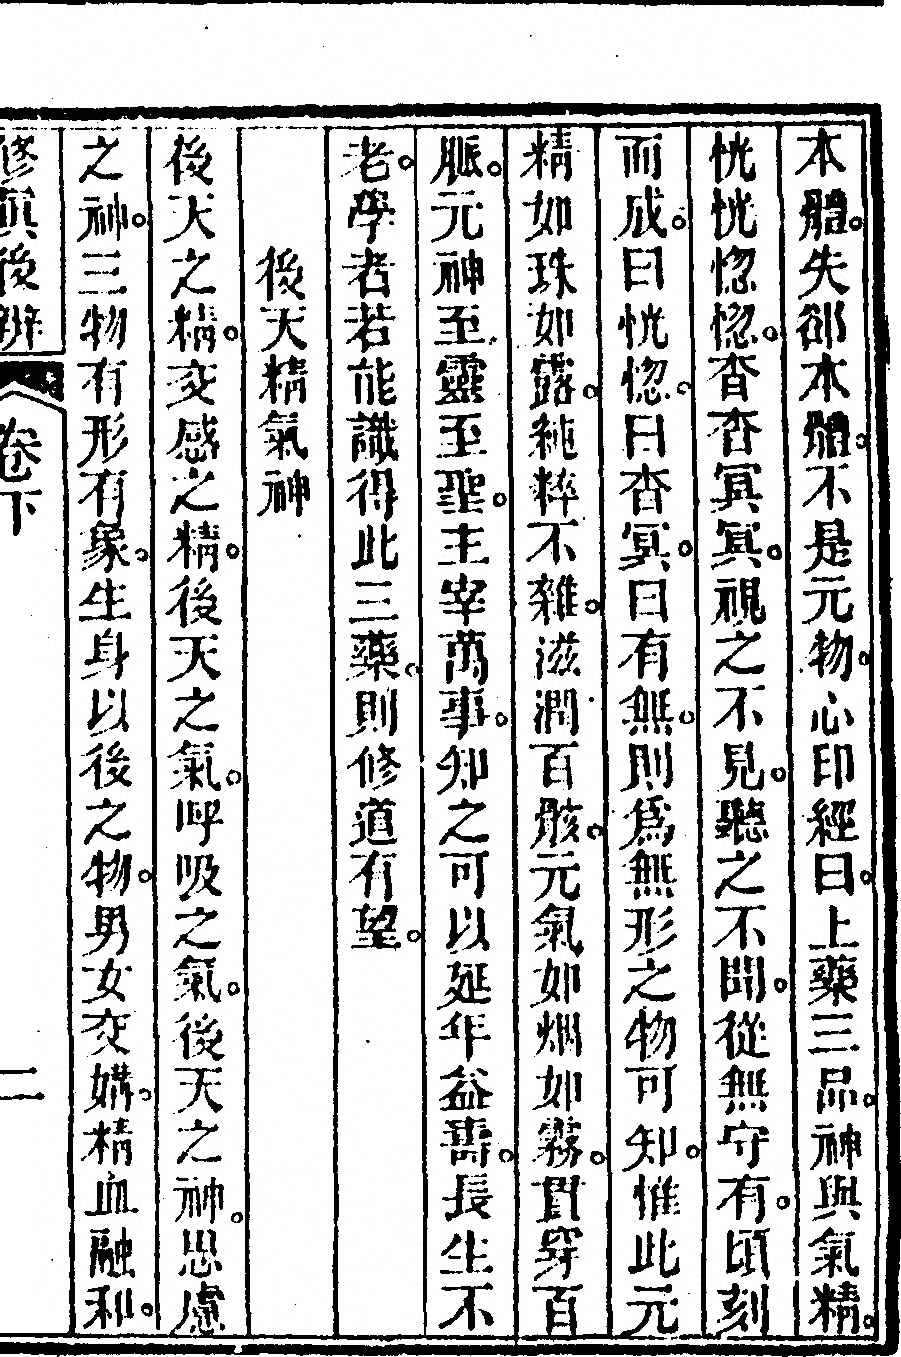 本體。失卻本體。不是元物。心印經曰。上藥三品。神與氣精。
恍恍惚惚。杳杳冥冥。視之不見。聽之不聞。從無守有。頃刻
而成。曰恍惚。曰杳冥。曰有無。則爲無形之物可知。惟此元
精如珠如露。純粹不雜。滋潤百骸。元氣如烟如霧。貫穿百
脈。元神至靈至聖。主宰萬事。知之可以延年益壽。長生不
老。學者若能識得此三藥。則修道有望。
後天精氣神
後天之精。交感之精。後天之氣。呼吸之氣。後天之神。思慮
之神。三物有形有象。生身以後之物。男女交媾。精血融和。
修眞後辨
卷下
二